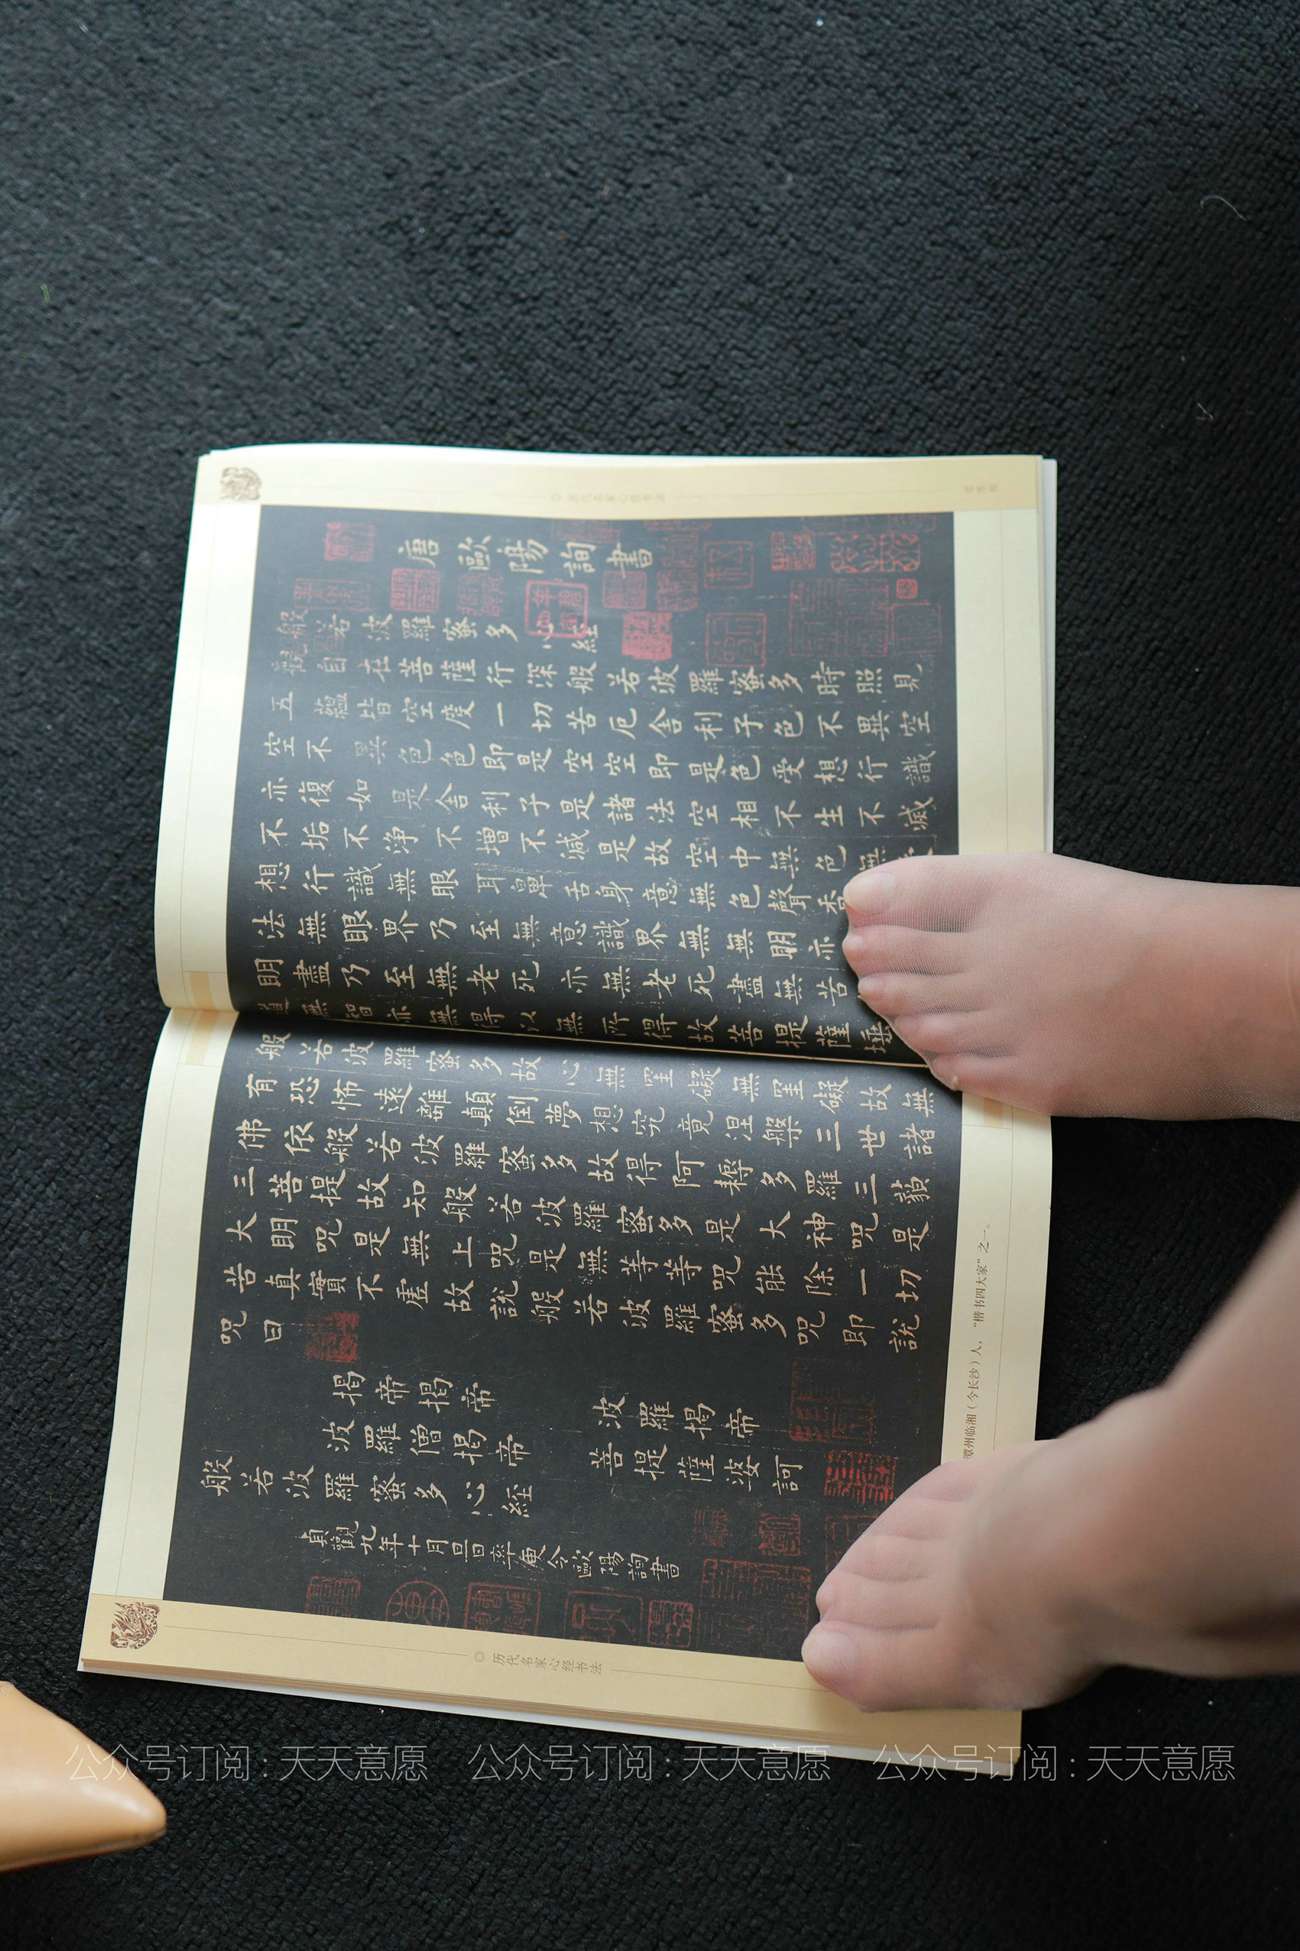 唐歐陽詢書
般若波羅蜜多心經
觀自在菩薩行深般若波羅蜜多時照見
五蘊皆空度一切苦厄舍利子色不異空
空不異色色即是空空即是色受想行識
亦復如是舍利子是諸法空相不生不滅
不垢不淨不增不減是故空中無色無
想行識無眼耳鼻舌身意無色聲香
法無眼界乃至無意識界無無明亦
明盡乃至無老死亦無老死盡無苦
道無智亦無得以無所得故菩提薩埵
般若波羅蜜多故心無罣礙無罣礙故無
有恐怖遠離顛倒夢想究竟涅槃三世諸
佛依般若波羅蜜多故得阿耨多羅三藐
三菩提故知般若波羅蜜多是大神咒是
大明咒是無上咒是無等等咒能除一切
苦真實不虛故說般若波羅蜜多咒即說
咒曰
揭帝揭帝 波羅揭帝
波羅僧揭帝 菩提薩婆訶
般若波羅蜜多心經
貞觀九年十月旦日率更令歐陽詢書
潭州临湘（今长沙）人，“楷书四大家”之一。
◎ 历代名家心经书法
公众号订阅：天天意愿 公众号订阅：天天意愿 公众号订阅：天天意愿